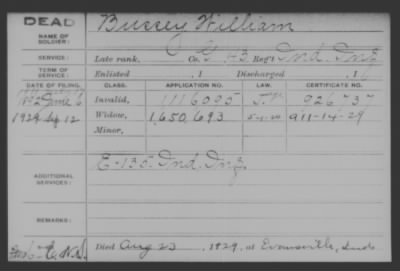 DEAD
Bussey William
NAME OF SOLDIER:
SERVICE: Late rank, Co. G 43 Reg't Ind. Inf.
TERM OF SERVICE: Enlisted , 1 Discharged , 1
DATE OF FILING. CLASS. APPLICATION NO. LAW. CERTIFICATE NO.
1892 June 6 Invalid, 1116095 926737
1929 Sep 12 Widow, 1,650,693 5-1-20 a11-14-29
Minor,
ADDITIONAL SERVICES: E-135 Ind. Inf.
REMARKS:
Died Aug 23 , 1929, at Evansville, Ind.